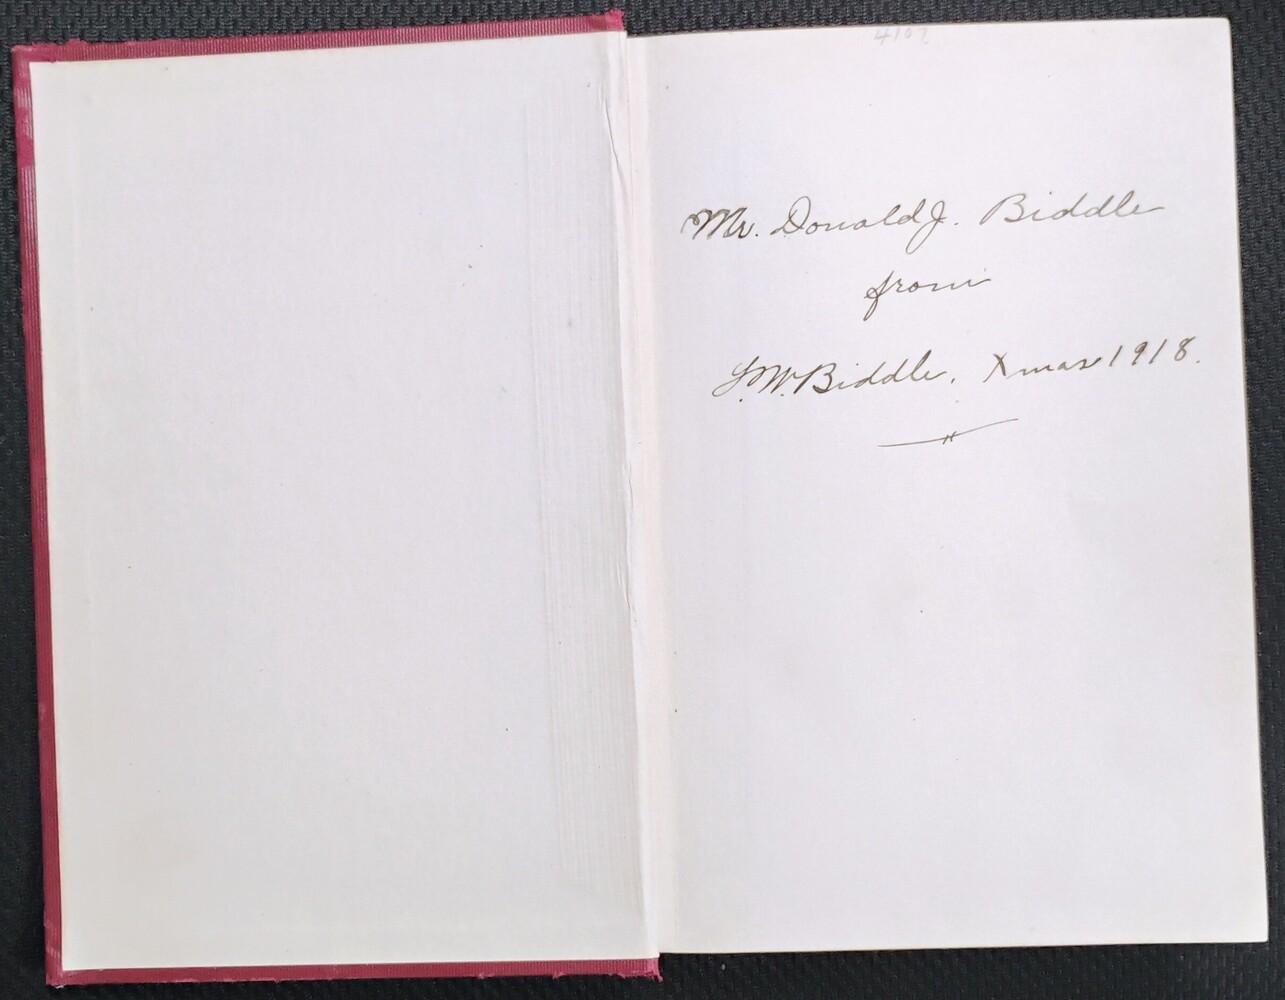 4107
Mr. Donald J. Biddle
from
L. W. Biddle. Xmas 1918.